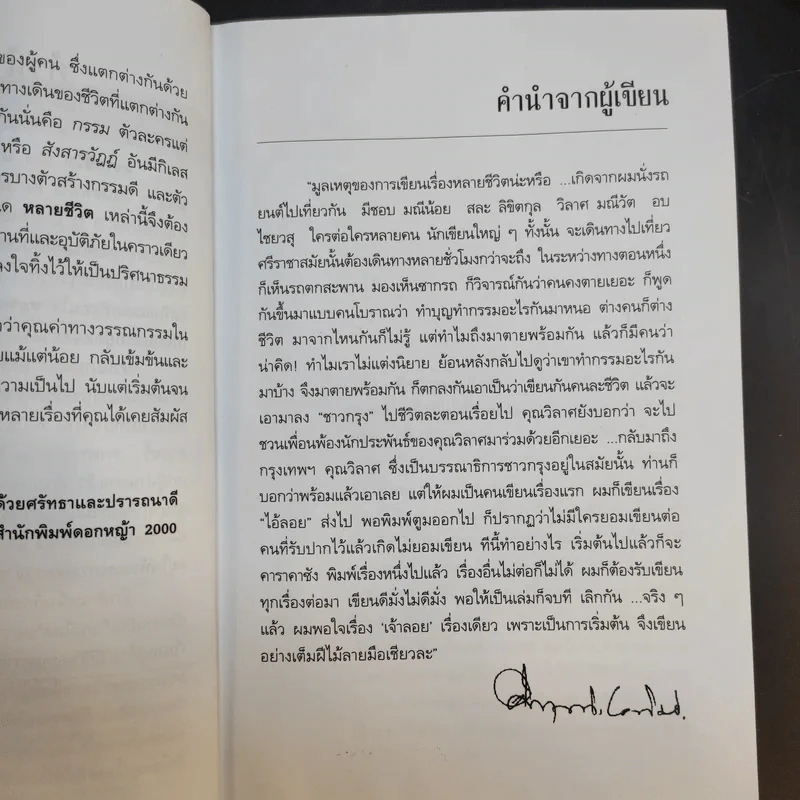 ของผู้คน ซึ่งแตกต่างกันด้วย
ทางเดินของชีวิตที่แตกต่างกัน
กันนั่นคือ กรรม ตัวละครแต่
หรือ สังสารวัฏฏ์ อันมีกิเลส
รบางตัวสร้างกรรมดี และตัว
ด หลายชีวิต เหล่านี้จึงต้อง
านที่และอุบัติภัยในคราวเดียว
ลงใจทิ้งไว้ให้เป็นปริศนาธรรม
ว่าคุณค่าทางวรรณกรรมใน
ยแม้แต่น้อย กลับเข้มข้นและ
วามเป็นไป นับแต่เริ่มต้นจน
หลายเรื่องที่คุณได้เคยสัมผัส
ด้วยศรัทธาและปรารถนาดี
สำนักพิมพ์ดอกหญ้า 2000
คำนำจากผู้เขียน
"มูลเหตุของการเขียนเรื่องหลายชีวิตน่ะหรือ ...เกิดจากผมนั่งรถ
ยนต์ไปเที่ยวกัน มีชอบ มณีน้อย สละ ลิขิตกุล วิลาศ มณีวัต อบ
ไชยวสุ ใครต่อใครหลายคน นักเขียนใหญ่ ๆ ทั้งนั้น จะเดินทางไปเที่ยว
ศรีราชาสมัยนั้นต้องเดินทางหลายชั่วโมงกว่าจะถึง ในระหว่างทางตอนหนึ่ง
ก็เห็นรถตกสะพาน มองเห็นซากรถ ก็วิจารณ์กันว่าคนคงตายเยอะ ก็พูด
กันขึ้นมาแบบคนโบราณว่า ทำบุญทำกรรมอะไรกันมาหนอ ต่างคนก็ต่าง
ชีวิต มาจากไหนกันก็ไม่รู้ แต่ทำไมถึงมาตายพร้อมกัน แล้วก็มีคนว่า
น่าคิด! ทำไมเราไม่แต่งนิยาย ย้อนหลังกลับไปดูว่าเขาทำกรรมอะไรกัน
มาบ้าง จึงมาตายพร้อมกัน ก็ตกลงกันเอาเป็นว่าเขียนกันคนละชีวิต แล้วจะ
เอามาลง "ชาวกรุง" ไปชีวิตละตอนเรื่อยไป คุณวิลาศยังบอกว่า จะไป
ชวนเพื่อนพ้องนักประพันธ์ของคุณวิลาศมาร่วมด้วยอีกเยอะ ...กลับมาถึง
กรุงเทพฯ คุณวิลาศ ซึ่งเป็นบรรณาธิการชาวกรุงอยู่ในสมัยนั้น ท่านก็
บอกว่าพร้อมแล้วเอาเลย แต่ให้ผมเป็นคนเขียนเรื่องแรก ผมก็เขียนเรื่อง
"ไอ้ลอย" ส่งไป พอพิมพ์ตูมออกไป ก็ปรากฏว่าไม่มีใครยอมเขียนต่อ
คนที่รับปากไว้แล้วเกิดไม่ยอมเขียน ทีนี้ทำอย่างไร เริ่มต้นไปแล้วก็จะ
คาราคาซัง พิมพ์เรื่องหนึ่งไปแล้ว เรื่องอื่นไม่ต่อก็ไม่ได้ ผมก็ต้องรับเขียน
ทุกเรื่องต่อมา เขียนดีมั่งไม่ดีมั่ง พอให้เป็นเล่มก็จบที เลิกกัน ...จริง ๆ
แล้ว ผมพอใจเรื่อง 'เจ้าลอย' เรื่องเดียว เพราะเป็นการเริ่มต้น จึงเขียน
อย่างเต็มฝีไม้ลายมือเชียวละ"